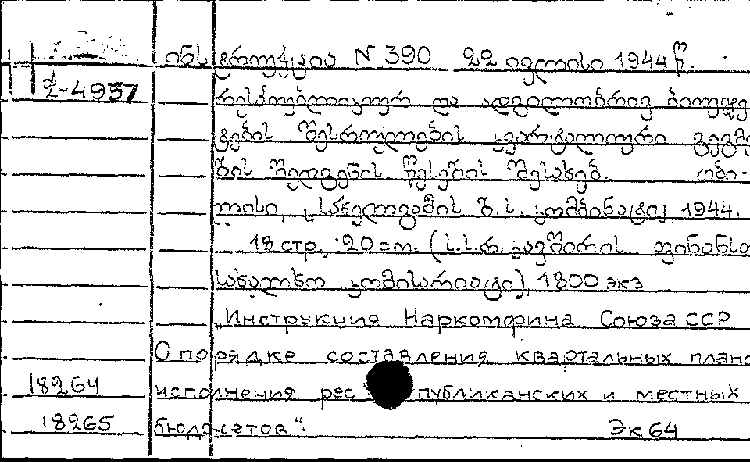 ინსტრუქცია N 390 22 ივლისი 1944 წ.
2-4937
რესპუბლიკურ და ადგილობრივ ბიუჯე-
ტების შესრულების კვარტალური გეგმე-
ბის შედგენის წესების შესახებ.
ლისი, სახელგამის ბ. ს. კომბინატი 1944.
18 стр. 20 см. (ს.ს.რ. კავშირის ფინანსთა
სახალხო კომისარიატი), 1800 экз
„Инструкция Наркомфина Союза ССР
О порядке составления квартальных плано
18264 исполнения республиканских и местных
18265 бюджетов". Эк 64